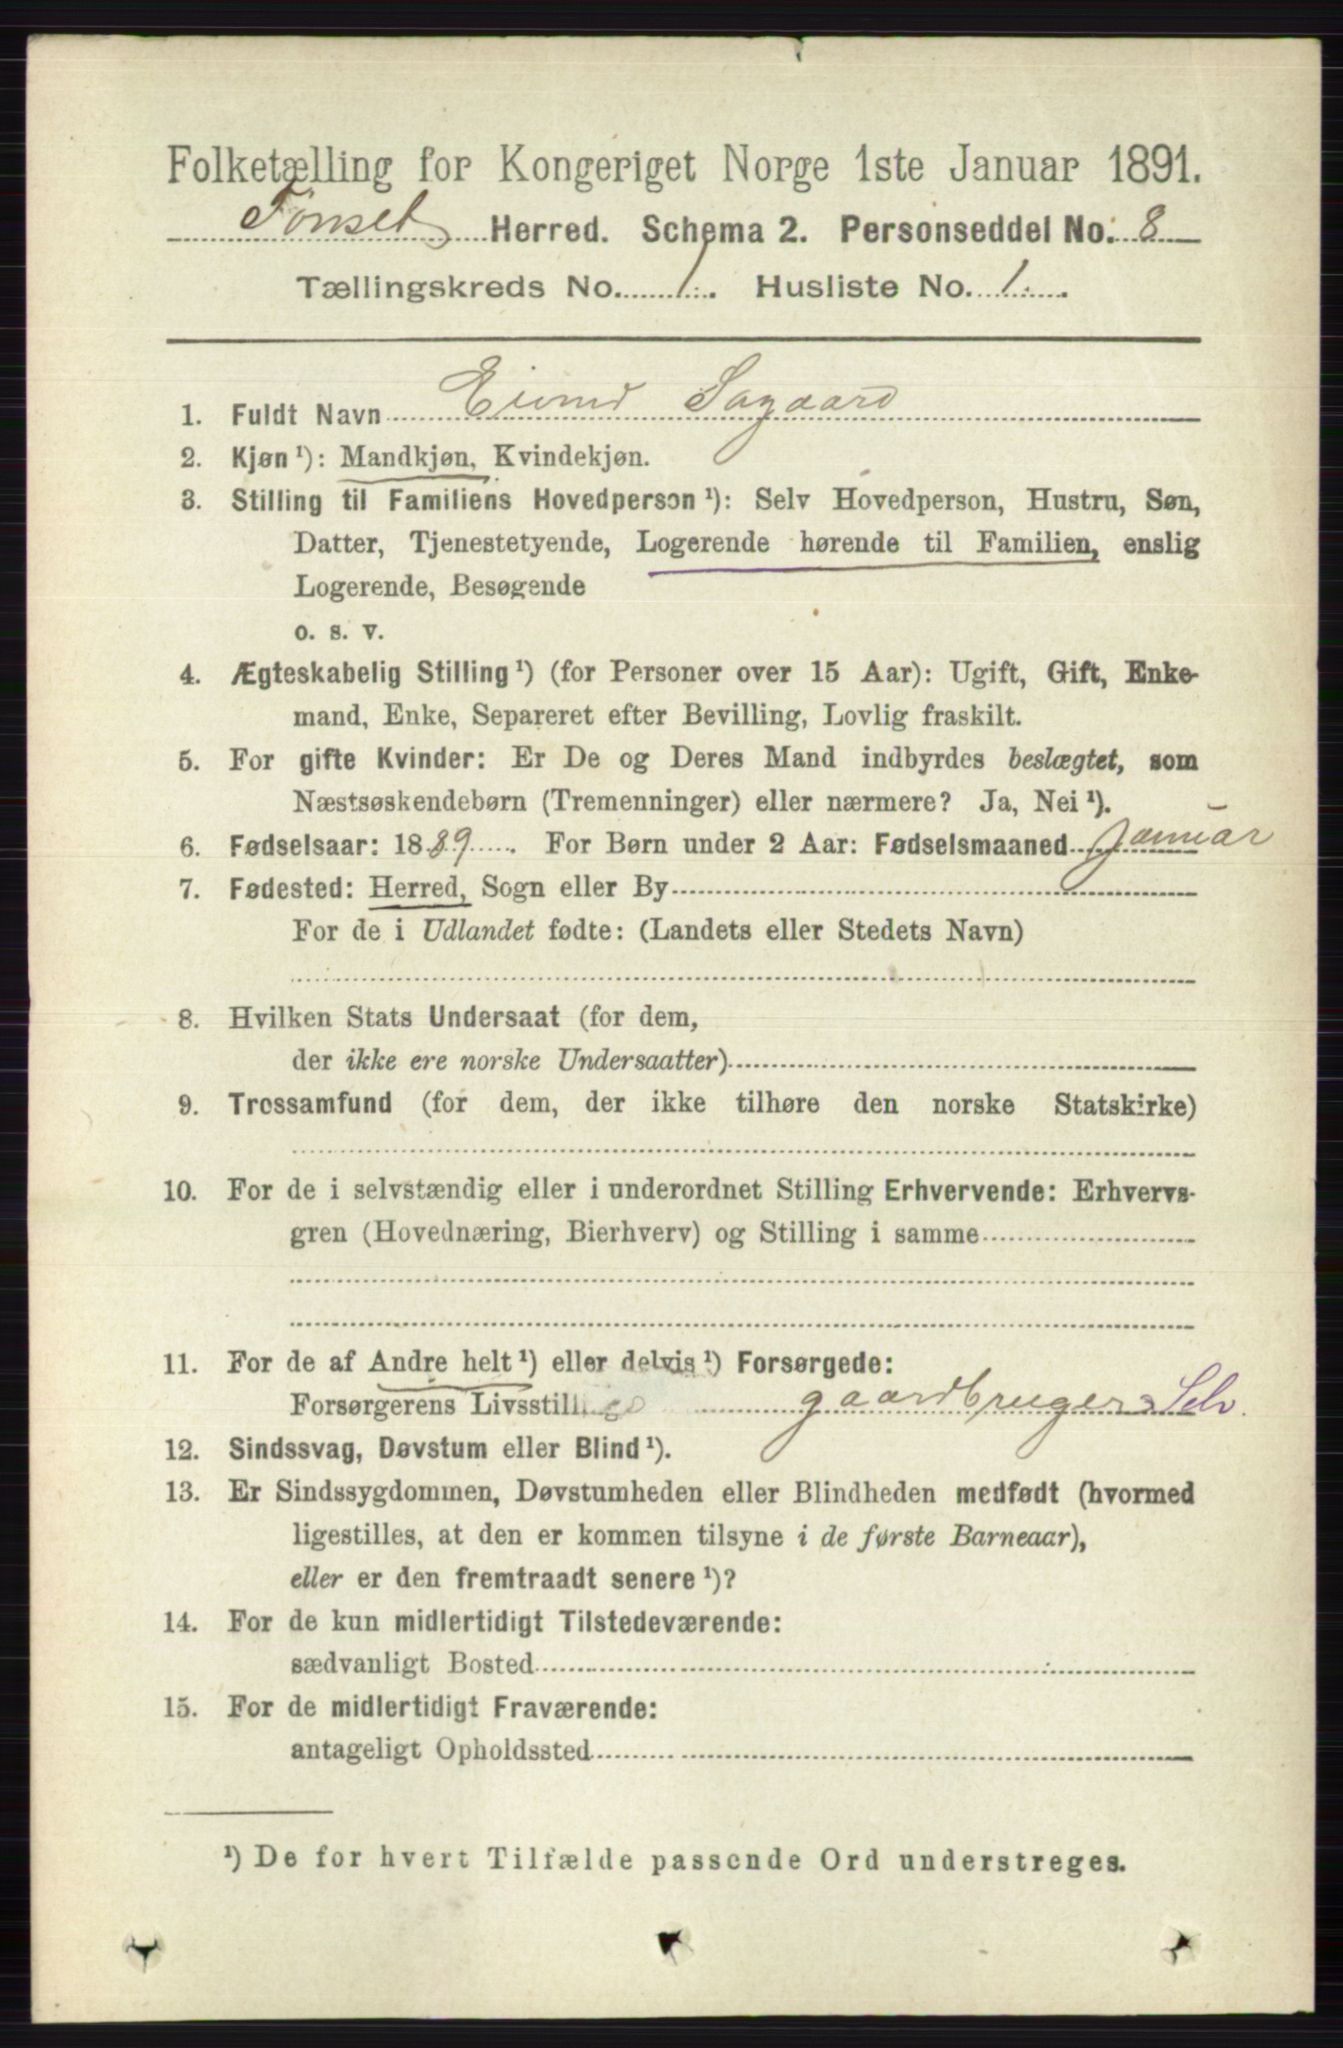 Folketælling for Kongeriget Norge 1ste Januar 1891.
Tønset Herred. Schema 2. Personseddel No. 8
Tællingskreds No. 1. Husliste No. 1.
1. Fuldt Navn Eivind Sagaard
2. Kjøn ¹): Mandkjøn, Kvindekjøn.
3. Stilling til Familiens Hovedperson ¹): Selv Hovedperson, Hustru, Søn,
Datter, Tjenestetyende, Logerende hørende til Familien, enslig
Logerende, Besøgende
o. s. v.
4. Ægteskabelig Stilling ¹) (for Personer over 15 Aar): Ugift, Gift, Enke-
mand, Enke, Separeret efter Bevilling, Lovlig fraskilt.
5. For gifte Kvinder: Er De og Deres Mand indbyrdes beslægtet, som
Næstsøskendebørn (Tremenninger) eller nærmere? Ja, Nei ¹).
6. Fødselsaar: 1889. For Børn under 2 Aar: Fødselsmaaned Januar
7. Fødested: Herred, Sogn eller By
For de i Udlandet fødte: (Landets eller Stedets Navn)
8. Hvilken Stats Undersaat (for dem,
der ikke ere norske Undersaatter)
9. Trossamfund (for dem, der ikke tilhøre den norske Statskirke)
10. For de i selvstændig eller i underordnet Stilling Erhvervende: Erhvervs-
gren (Hovednæring, Bierhverv) og Stilling i samme
11. For de af Andre helt ¹) eller delvis ¹) Forsørgede:
Forsørgerens Livsstilling gaardbruger Selv.
12. Sindssvag, Døvstum eller Blind ¹).
13. Er Sindssygdommen, Døvstumheden eller Blindheden medfødt (hvormed
ligestilles, at den er kommen tilsyne i de første Barneaar),
eller er den fremtraadt senere ¹)?
14. For de kun midlertidigt Tilstedeværende:
sædvanligt Bosted
15. For de midlertidigt Fraværende:
antageligt Opholdssted
¹) De for hvert Tilfælde passende Ord understreges.